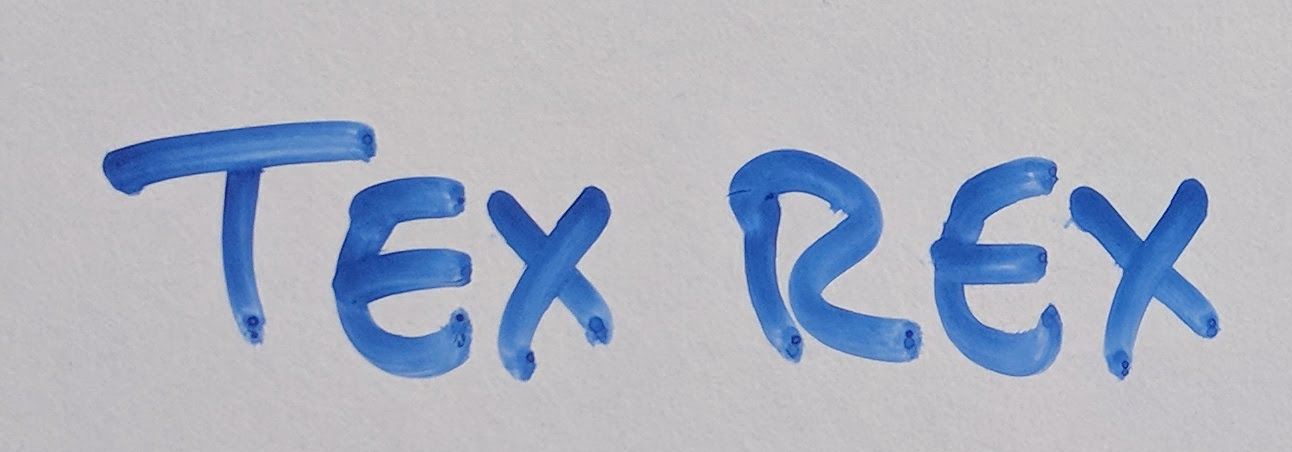 TEX REX